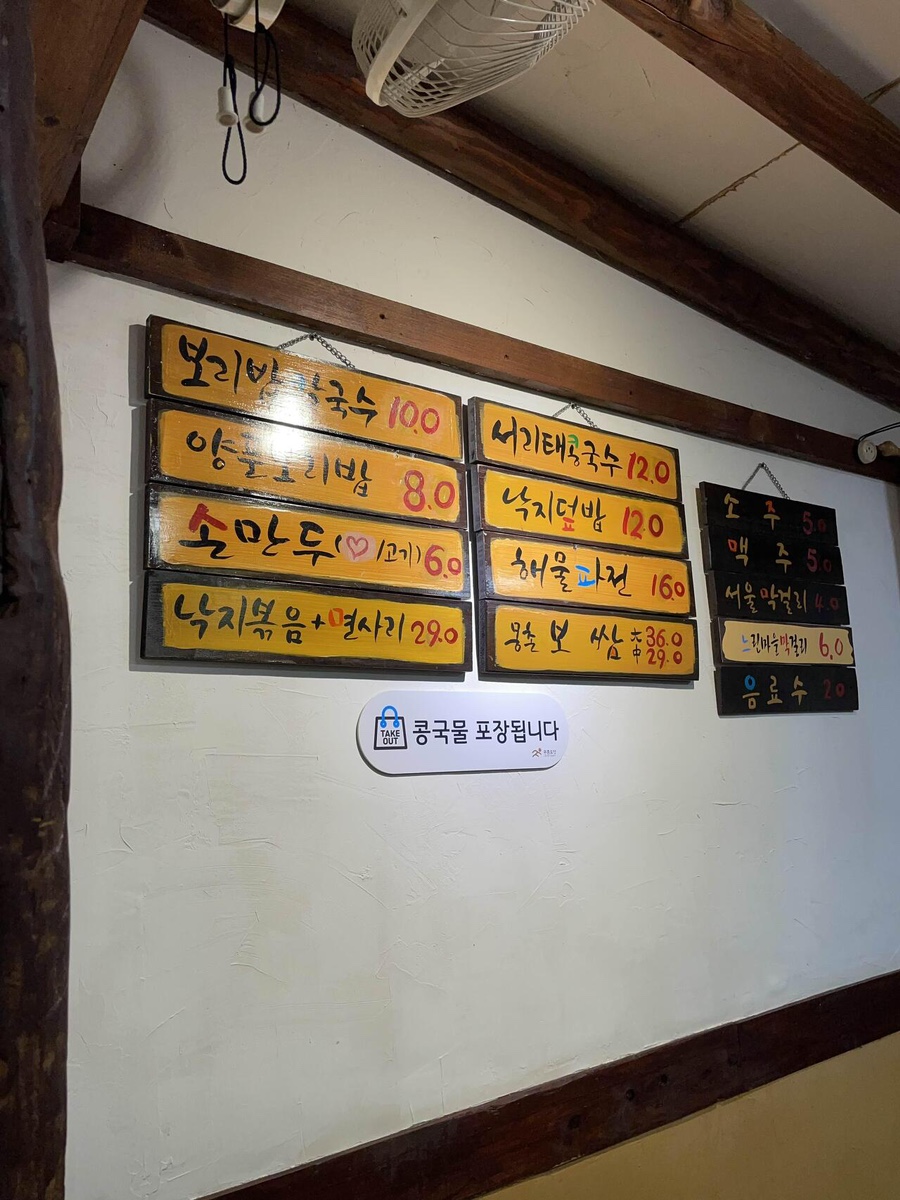 보리밥 칼국수 10.0
양푼보리밥 8.0
손만두(♡/고기) 6.0
낙지볶음+면사리 29.0
서리태콩국수 12.0
낙지덮밥 12.0
해물파전 16.0
몽촌 보쌈 大 36.0
中 29.0
소주 5.0
맥주 5.0
서울막걸리 4.0
느린마을막걸리 6.0
음료수 2.0
TAKE OUT 콩국물 포장됩니다